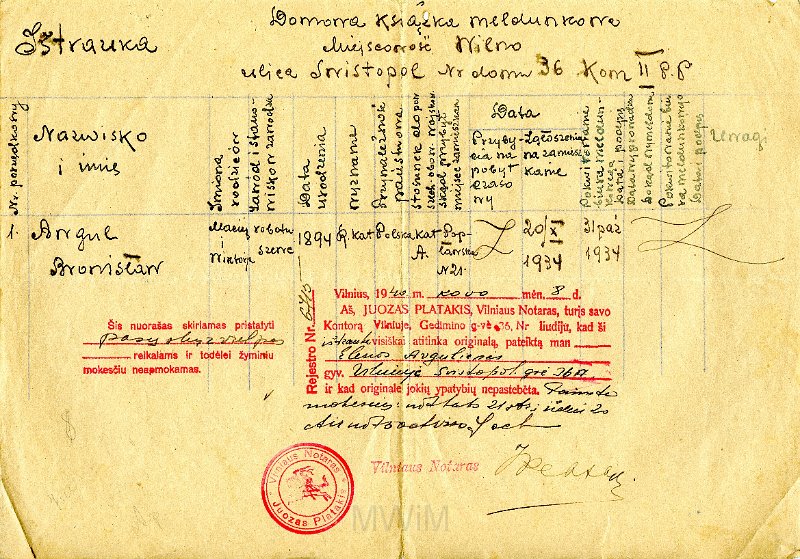 Domowa Książka meldunkowa
Iştrauka
Miejscowość Wilno
ulica Swistopol Nr domu 36 Kom II p. P
Nr. porządkowy
Nazwisko
i imię
Imiona
rodziców
Zawód i stano-
wisko w zawodzie
Data
urodzenia
wyznanie
Przynależność
państwowa
stosunek do pow
szech. obow. wojskow
skąd przybył
miejsce zamieszkan
Data
Przyby-
cia na
pobyt
czaso
wy
Zgłoszenie
na zamiesz
kanie
Pokwitowanie
biura meldun-
kowego
data i podpis
Data wygotowania
Dokąd się wymeldował
Pokwitowanie biu
ra meldunkowego
Data i podpis
Uwagi
1. Awgul
Bronisław
Maciej
i Wiktorja
robotn
1894
R. kat
Polska
Kat
A.
Pop-
ławska
N 21
20/XI
1934
21 paź
1934
Vilnius, 1940 m. kovo mėn. 8 d.
Aš, JUOZAS PLATAKIS, Vilniaus Notaras, turįs savo
Kontorą Vilniuje, Gedimino g-vė 36, Nr liudiju, kad ši
ištrauka visiškai atitinka originalą, pateiktą man
Elenos Avgulienės
gyv. Vilniuje Svistopol gvė 36
ir kad originale jokių ypatybių nepastebėta.
Rejestro Nr. 6710
Šis nuorašas skiriamas pristatyti
reikalams ir todėlei žyminiu
mokesčiu neapmokamas.
Vilniaus Notaras
Vilniaus Notaras
Juozas Platakis
MWiM